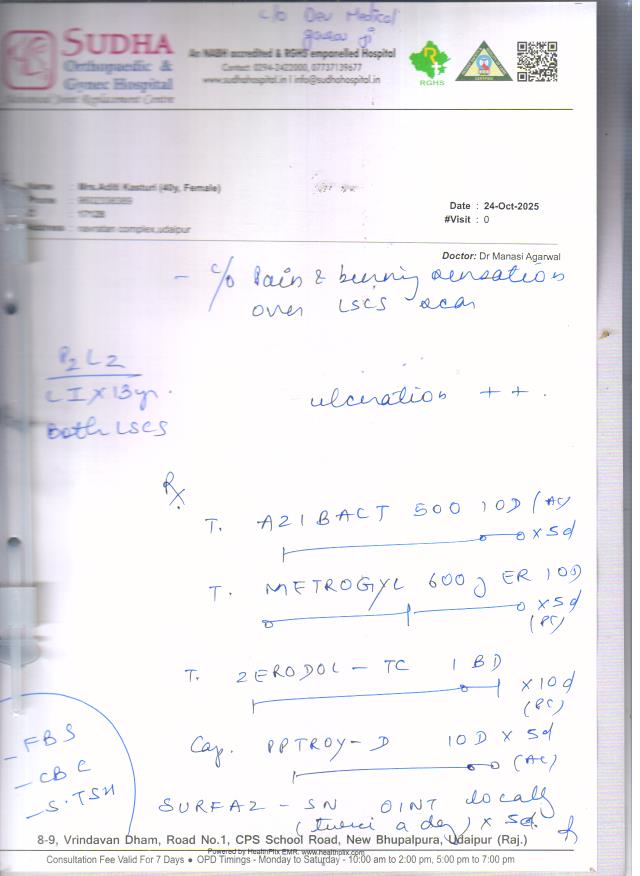 c/o Dev Medical
SUDHA
Orthopaedic &
Gynec Hospital
Advanced Joint Replacement Centre
An NABH accredited & RGHS empanelled Hospital
Contact: 0294-2422000, 07737139677
www.sudhahospital.in | info@sudhahospital.in
RGHS
Name : Mrs.Aditi Kasturi (40y, Female)
Phone :
ID : 17128
Address : navratan complex,udaipur
Date : 24-Oct-2025
#Visit : 0
Doctor: Dr Manasi Agarwal
- c/o Pain & burning sensation
over LSCS scar
P2L2
LI X 13yr.
Both LSCS
ulceration + + .
Rx
T. AZIBACT 500 1OD (AC)
x 5d
T. METROGYL 600g ER 1OD
x 5d
(PC)
T. ZERODOL - TC 1 BD
x 10d
(PC)
Cap. PPTROY - D 1OD x 5d
(AC)
- FBS
- CBC
- S.TSH
SURFAZ - SN OINT locally
(twice a day) x 5d.
8-9, Vrindavan Dham, Road No.1, CPS School Road, New Bhupalpura, Udaipur (Raj.)
Powered by HealthPlix EMR. www.healthplix.com
Consultation Fee Valid For 7 Days ● OPD Timings - Monday to Saturday - 10:00 am to 2:00 pm, 5:00 pm to 7:00 pm